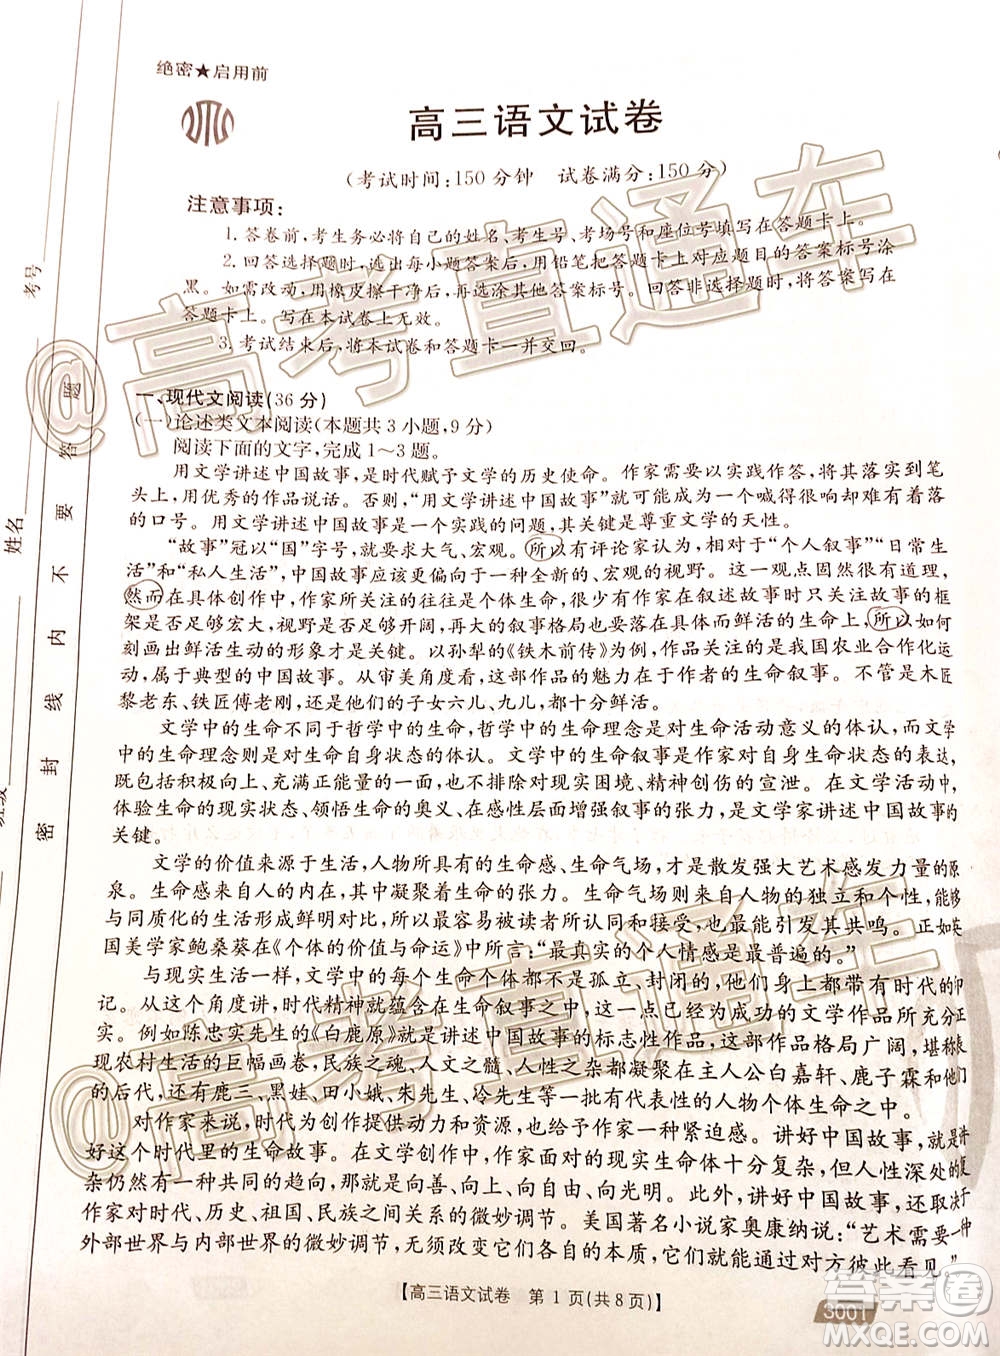 绝密★启用前
高三语文试卷
(考试时间:150分钟　试卷满分:150分)
注意事项:
1. 答卷前,考生务必将自己的姓名、考生号、考场号和座位号填写在答题卡上。
2. 回答选择题时,选出每小题答案后,用铅笔把答题卡上对应题目的答案标号涂
黑。如需改动,用橡皮擦干净后,再选涂其他答案标号。回答非选择题时,将答案写在
答题卡上。写在本试卷上无效。
3. 考试结束后,将本试卷和答题卡一并交回。
一、现代文阅读(36分)
(一)论述类文本阅读(本题共3小题,9分)
阅读下面的文字,完成1～3题。
用文学讲述中国故事,是时代赋予文学的历史使命。作家需要以实践作答,将使命落到笔
头上,用优秀的作品说话。否则,“用文学讲述中国故事”就会成为一个喊得很响但却难有着落
的口号。用文学讲述中国故事是一个实践的问题,其关键是尊重文学的天性。
“故事”冠以“国”字号,就要求大气、宏观。所以有评论家认为,相对于“个人叙事”“日常生
活”和“私人生活”,中国故事应该更偏向于一种全新的、宏观的视野。这一观念固然没有问题,
然而在具体创作中,作家所关注的往往是个体生命,很少有作家直接关注时代与故事的框
架是否足够宏大,视野是否足够开阔,再大的叙事格局也要落在具体而鲜活的生命上,所以如何
刻画出鲜活生动的形象才是关键。以孙犁的《铁木前传》为例,作品关注的是我国农业合作化运
动,属于典型的中国故事。从审美角度看,作品的魅力在于作者的生命意识。不管是木匠
黎老东、铁匠傅老刚,还是他们的子女六儿、九儿,都十分鲜活。
文学中的生命不同于哲学中的生命,哲学中的生命理念是对生命活动意义的体认,而文学
中的生命理念是对生命自身状态的体认。文学中的生命叙事是作家对自身生命状态的表达,
既包括积极向上、充满正能量的一面,也不排除对现实困境、精神创伤的宣泄。在文学活动中,
体验生命的现实状态、领悟生命的奥义、在感性层面增强叙事的张力,是文学家讲述中国故事的
关键。
文学的价值来源于生活,人物所具有的生命感、生命气场,才是散发强大艺术感发力量的源
泉。生命感来自人的内在,其中凝聚着生命的张力。生命气场则来自人物的独立和个性,能够
与同质化的生活形成鲜明对比,最容易被读者所认同和接受,也最能引发其共鸣。正如英
国美学家鲍桑葵在《个体的价值与命运》中所言:“最真实的个人情感是最普遍的。”
与现实生活一样,文学中的每个生命个体都不是孤立、封闭的,他们身上都带有时代的印
记。从这个角度讲,时代精神就蕴含在生命叙事之中,这一点已经为成功的文学作品所充分证
实。例如陈忠实先生的《白鹿原》就是讲述中国故事的标志性作品,这部作品格局广阔,堪称表
现农村生活的巨幅画卷,民族之魂、人文之髓、一方之杂都凝聚在主人公白嘉轩、鹿子霖和他们
的后代,还有鹿三、黑娃、田小娥、朱先生、冷先生等一批有代表性的人物个体生命之中。
对作家来说,时代为创作提供动力和资源,也给予作家一种紧迫感。讲好中国故事,就是讲
好这个时代里的生命故事。在文学创作中,作家面对的生命体十分复杂,但人性深处的复
杂仍然有一种共同的趋向,那就是向善、向上、向自由、向光明。此外,讲好中国故事,还取决于
作家对时代、历史、祖国、民族之间关系的微妙调节。美国著名小说家奥康纳说:“艺术需要一种
外部世界与内部世界的微妙调节,无须改变它们各自的本质,它们就能透过对方彼此看见。”
【高三语文试卷　第1页(共8页)】
3001
考号
姓名
班级
密封线内不要答题
@高考直通车
@高考直通车
答案圈
MXQE.COM